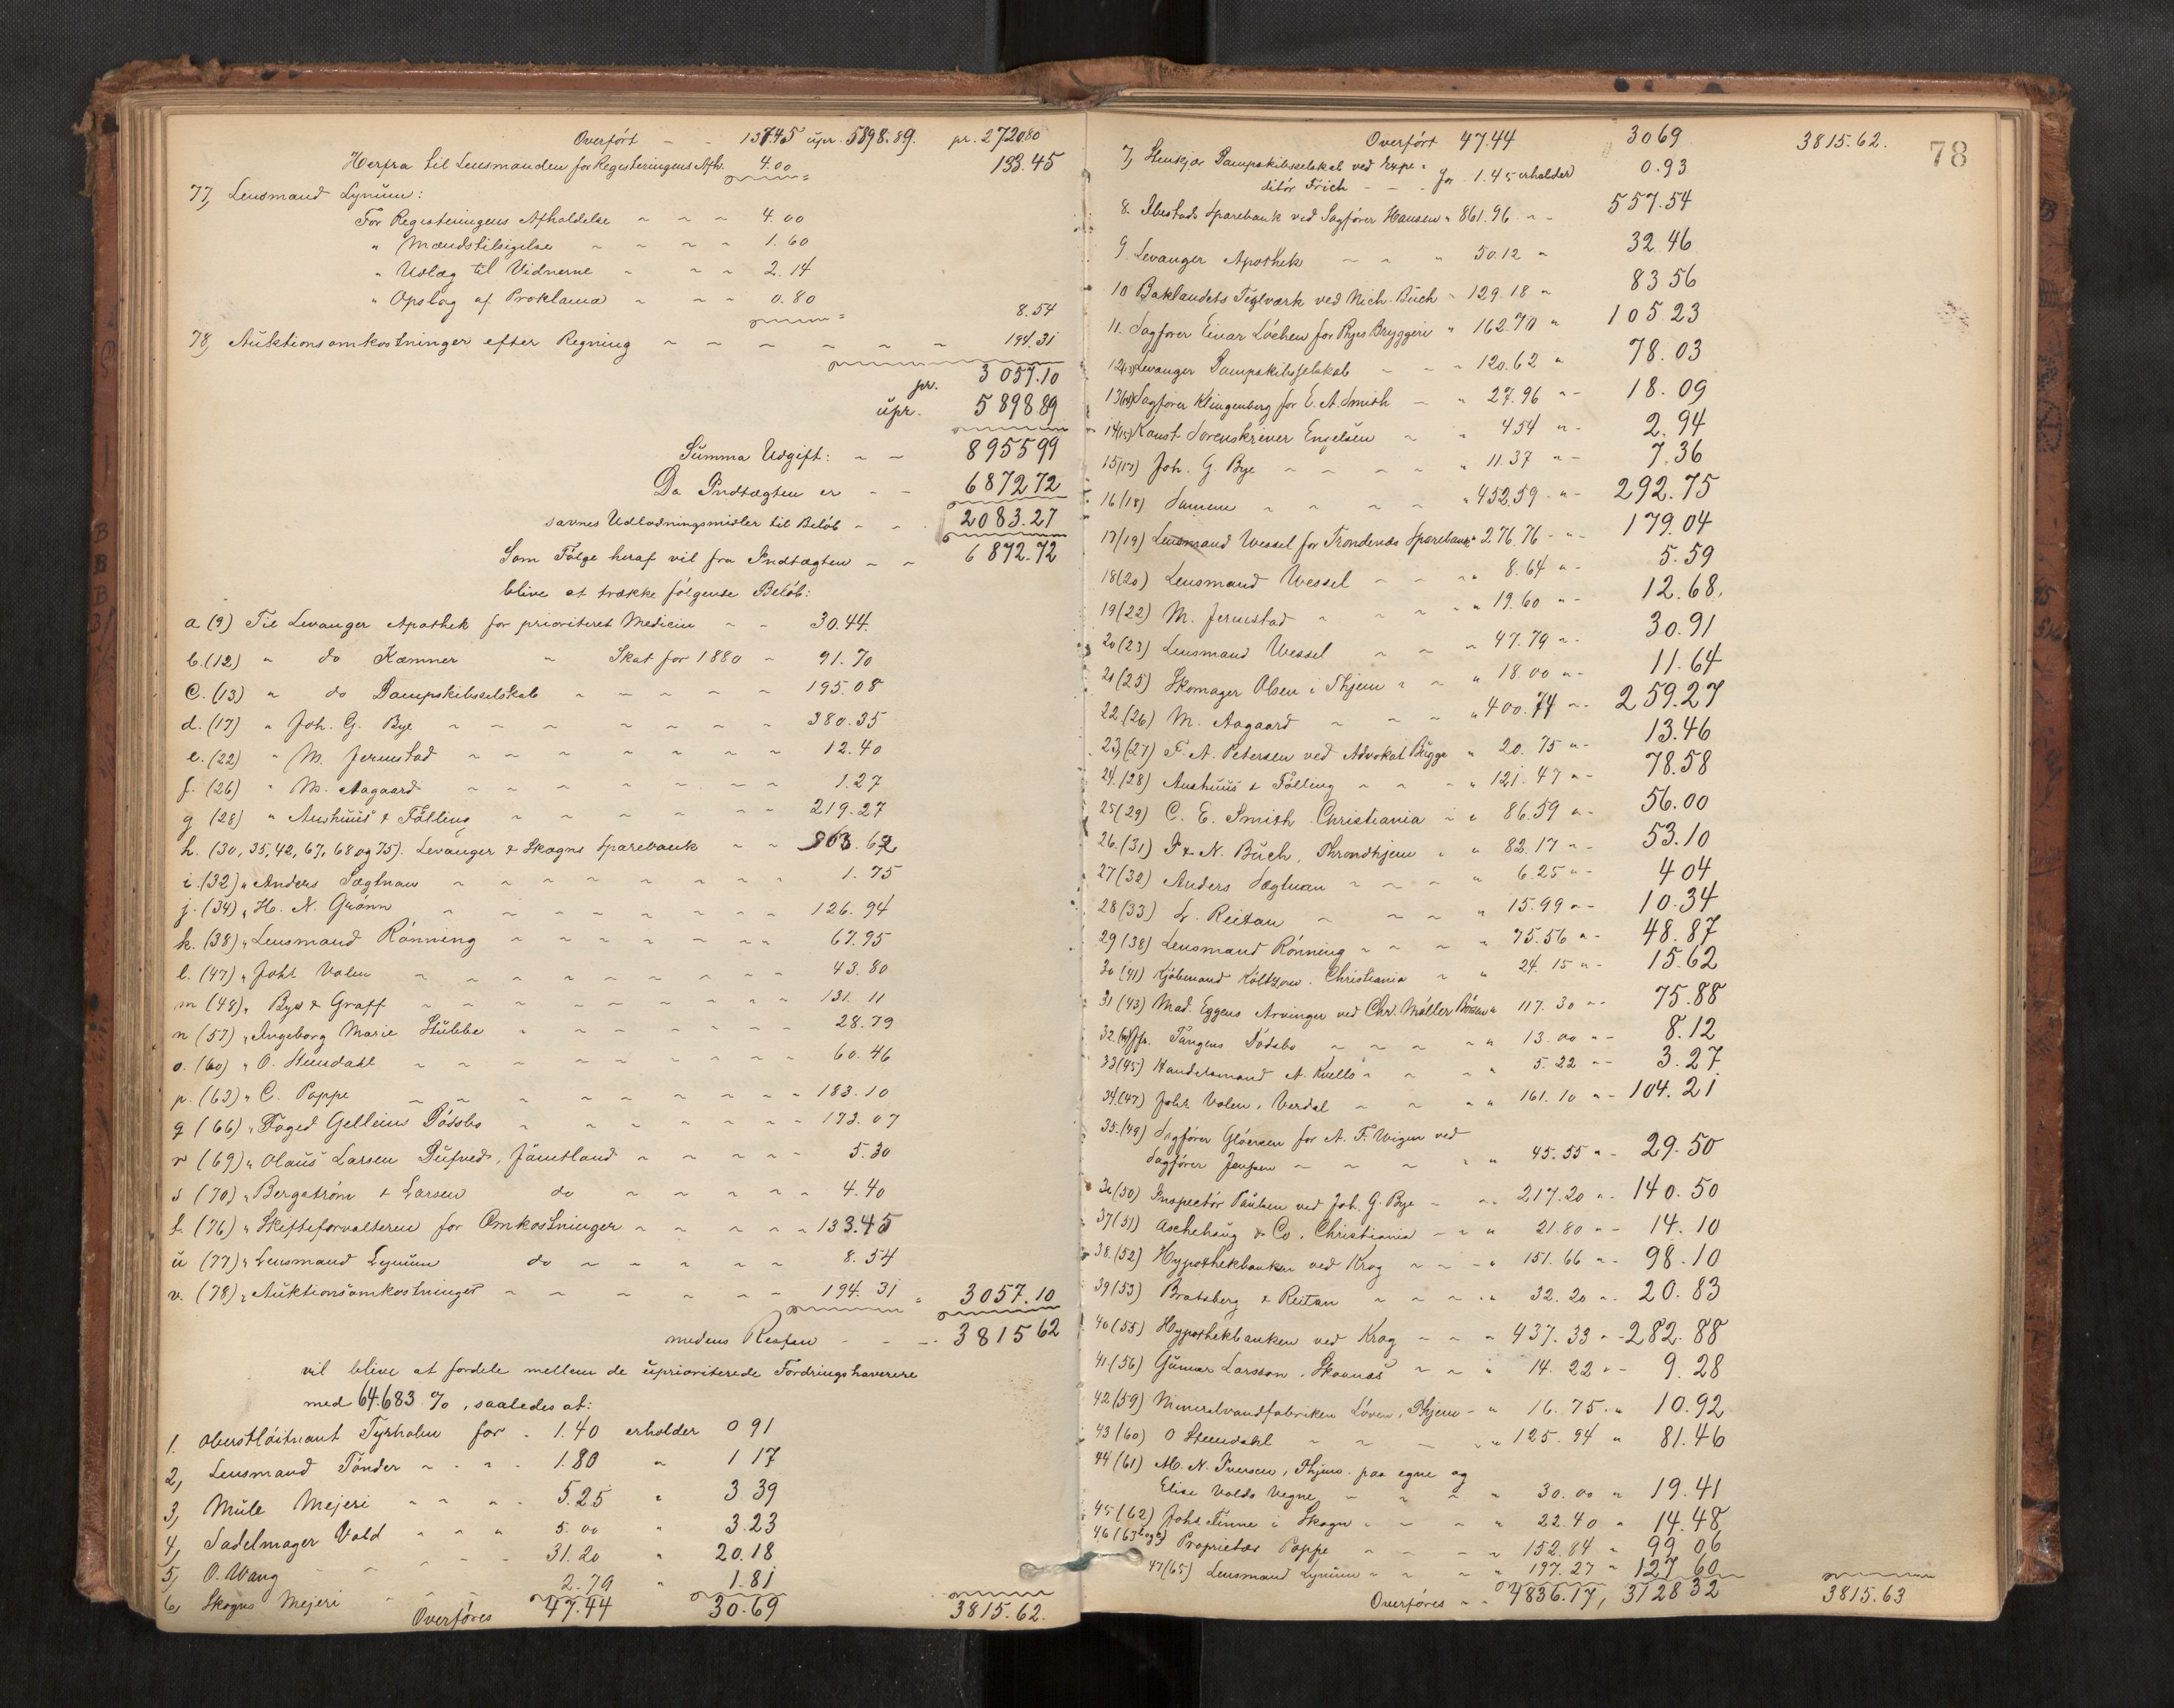 Overført - - 137.45 upr. 5898.89. pr. 2720.80
Herfra til Lensmanden for Registeringens Afh. 4.00 133.45
77, Lensmand Lynum:
For Registeringens Afholdelse ~ ~ ~ 4.00
" Mændstilsigelse ~ ~ ~ ~ 1.60
" Udlæg til Vidnerne ~ ~ ~ 2.14
" Opslag af Proklama ~ ~ ~ 0.80 8.54
78, Auktionsomkostninger efter Regning ~ ~ ~ ~ ~ ~ 194.31
pr. 3057.10
upr. 5898 89
Summa Udgift: ~ ~ 8955 99
Da Indtægten er - - 6872 72
savnes Udlodningsmidler til Beløb ~ ~ 2083.27
Som Følge heraf vil fra Indtægten ~ ~ 6872.72
blive at trække følgende Beløb:
a (9) Til Levanger Apothek for prioriteret Medicin ~ ~ 30.44.
b. (12) " do Kæmner " Skat for 1880 ~ 91.70
c. (13) " do Dampskibsselskab ~ ~ ~ ~ ~ 195.08
d. (17) " Joh. G. Bye ~ ~ ~ ~ ~ ~ ~ 380.35
e. (22) " M. Jermstad ~ ~ ~ ~ ~ ~ ~ 12.40
f. (26) " M. Aagaard ~ ~ ~ ~ ~ ~ ~ 1.27
g (28) " Aushuus & Følling ~ ~ ~ ~ ~ ~ 219.27
h. (30, 35, 42, 67, 68 og 75). Levanger & Skogns Sparebank ~ ~ 863.62
i. (32) " Anders Sægtnan ~ ~ ~ ~ ~ ~ ~ 1.75
j. (34) " H. N. Grønn ~ ~ ~ ~ ~ ~ ~ 126.94
k. (38) " Lensmand Rønning ~ ~ ~ ~ ~ ~ 67.95
l. (47) " Johs Volen ~ ~ ~ ~ ~ ~ ~ 43.80
m (48) " Bye & Graff ~ ~ ~ ~ ~ ~ ~ 131.11
n (57) " Ingeborg Marie Stubbe ~ ~ ~ ~ ~ ~ 28.79
o. (60) " O. Steindahl ~ ~ ~ ~ ~ ~ ~ 60.46
p. (63) " C. Poppe ~ ~ ~ ~ ~ ~ ~ 183.10
q (66) " Foged Gelleins Dødsbo ~ ~ ~ ~ ~ ~ 173.07
r (69) " Olaus Larsen Dufved, Jämtland ~ ~ ~ ~ ~ 5.30
s (70) " Bergström & Larsen do ~ ~ ~ ~ ~ 4.40
t. (76) " Skifteforvalteren for Omkostninger ~ ~ ~ ~ ~ 133.45
u (77) " Lensmand Lynum do ~ ~ ~ ~ ~ 8.54
v. (78) " Auktionsomkostninger ~ ~ ~ ~ ~ ~ 194.31 = 3057.10
medens Resten - - - 3815 62
vil blive at fordele mellem de uprioriterede Fordringshavere
med 64.683 %, saaledes at:
1. Oberstløitnant Tyrholm for . 1.40 erholder 0 91
2, Lensmand Tønder ~ ~ ~ ~ 1.80 " 1 17
3, Mule Mejeri ~ ~ ~ ~ 5.25 " 3 39
4, Sadelmager Vold ~ ~ ~ 5.00 " 3.23
5, O. Wang ~ ~ ~ ~ 31.20 " 20.18
6, Skogns Mejeri ~ ~ ~ 2.79 " 1.81
Overføres 47.44 30.69 3815.62.
78
Overført 47.44 3069 3815.62.
7, Stenkjær Dampskibsselskab ved Expe=
ditør Frich - - - for 1.45 erholder 0.93
8. Ibestads Sparebank ved Sagfører Hansen " 861.96 ~ - 557.54
9. Levanger Apothek ~ ~ " 50.12 " 32.46
10 Baklandets Teglværk ved Nich. Buch " 129.18 " 83 56
11. Sagfører Einar Løchen for Ryes Bryggeri " 162.70 " 105.23
12(13) Levanger Dampskibsselskab ~ ~ ~ 120.62 " 78.03
13(14) Sagfører Klingenberg for E. A. Smith ~ " 27.96 " - 18.09
14(15) Konst Sorenskriver Engelsen ~ " 4 54 " - 2.94
15(17) Joh. G. Bye ~ ~ ~ ~ " 11.37 " - 7.36
16(18) Samme ~ ~ ~ ~ " 452.59 - " - 292.75
17(19) Lensmand Wessel for Trondenæs Sparebank " 276.76 - " - 179.04
18(20) Lensmand Wessel ~ ~ ~ " 8.64 " - 5.59
19(22) M. Jermstad ~ ~ ~ ~ " 19.60 " - 12.68.
20(23) Lensmand Wessel ~ ~ ~ " 47.79 " - 30.91
21(25) Skomager Olsen i Thjem ~ ~ " 18.00 " - 11.64
22(26) M. Aagaard ~ ~ ~ " 400.74 " - 259.27
23,(27) F. A. Petersen ved Advokat Bugge " 20.75 " - 13.46
24.(28) Aushuus & Følling ~ ~ ~ " 121.47 " - 78.58
25(29) C. E. Smith Christiania ~ " 86.59 " - 56.00
26.(31) P & N. Buch, Throndhjem " " 82.17 " - 53.10
27(32) Anders Sægtnan ~ ~ ~ " 6.25 " - 4 04
28(33) L. Reitan ~ ~ ~ " 15.99 " - 10.34
29(38) Lensmand Rønning ~ ~ ~ " 75.56 " - 48.87
30(41) Kjøbmand Koltzow. Christiania ~ " 24.15 " - 15.62
31(43) Mad. Eggens Arvinger ved Chr. Møller " 117.30 " - 75.88
32.(44) Tangens Dødsbo ~ ~ ~ ~ " 13.00 " - 8.12
33(45) Handelsmand A. Kvello ~ ~ ~ " 5.22 " - 3.27
34.(47) Johs Volen, Verdal ~ ~ ~ " 161.10 " - 104.21
35.(49) Sagfører Gløersen for A. F. Wigen ved
Sagfører Jenssen ~ ~ ~ " " 45.55 " - 29.50
36(50) Inspectør Paulsen ved Joh. G. Bye - " 217.20 " . 140.50
37(51) Aschehoug & Co, Christiania ~ ~ " 21.80 " - 14.10
38.(52) Hypothekbanken ved Krog ~ ~ ~ " 151.66 " - 98.10
39(53) Bratsberg & Reitan ~ ~ ~ " 32.20 " . 20.83
40(55) Hypothekbanken ved Krog ~ ~ " 437.33 " - 282.88
41.(56) Gunnar Larsson, Skonnäs ~ ~ " 14.22 " - 9.28
42(59) Mineralvandfabriken Løven, Thjem - " 16.75 . " 10.92
43(60) O Steindahl ~ ~ ~ " 125.94 " 81.46
44(61) M. N. Iversen, Thjem. paa egne og
Elise Volds Vegne ~ ~ ~ " 30.00 " 19.41
45(62) Johs Finne i Skogn ~ ~ ~ " 22.40 " 14.48
46(63 og Proprietær Poppe ~ ~ ~ " 152.84 " 99 06
47(65) Lensmand Lynum ~ ~ ~ " 197.27 " 127 60
Overføres ~ ~ 4836.17, 3128 32 3815.63